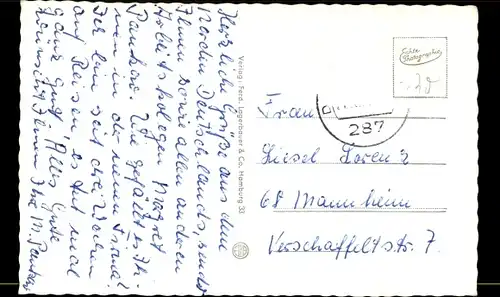 Herzliche Grüße aus dem
Norden Deutschlands, sendet
Ihnen sowie allen anderen
Arbeitskollegen Margret
Pankow. Wie gefällt es Ih-
nen in der neuen Firma?
Ich bin seit drei Wochen
auf Reisen, es tut mal
ganz gut. Alles Gute
wünscht Ihnen Ihre M. Pankow
Verlag: Ferd. Lagerbauer & Co., Hamburg 33
Echte
Photographie
287
Frau
Liesel Lorenz
68 Mannheim
Verschaffeltstr. 7